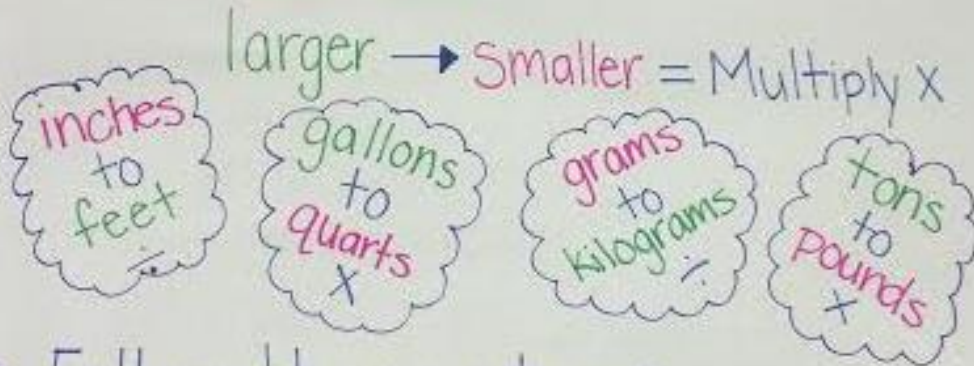 larger → Smaller = Multiply x
inches
to
feet
÷
gallons
to
quarts
x
grams
to
kilograms
÷
tons
to
pounds
x